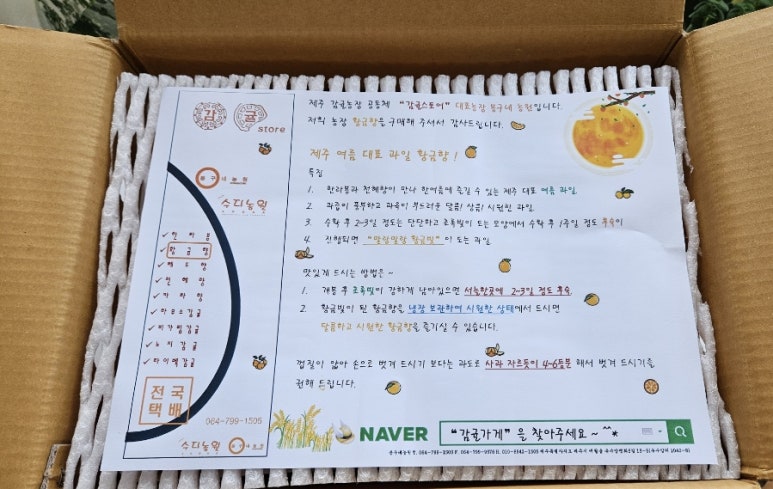 감귤
store
봉구네농원
수디농원
✓한라봉
✓황금향
✓레드향
✓천혜향
✓카라향
✓하우스감귤
✓비가림감귤
✓노지감귤
✓타이벡감귤
전국
택배
064-799-1505
수디농원
제주 감귤농장 공동체 "감귤스토어" 대표농장 봉구네 농원입니다.
저희 농장 황금향을 구매해 주셔서 감사드립니다.
제주 여름 대표 과일 황금향!
특징
1. 한라봉과 천혜향이 만나 한여름에 즐길 수 있는 제주 대표 여름 과일.
2. 과즙이 풍부하고 과육이 부드러운 달콤! 상큼! 시원한 과일.
3. 수확 후 2~3일 정도는 단단하고 초록빛이 도는 모양에서 수확 후 1주일 정도 후숙이
4. 진행되면 "말랑말랑 황금빛"이 도는 과일
맛있게 드시는 방법은~
1. 개봉 후 초록빛이 강하게 남아있으면 서늘한곳에 2~3일 정도 후숙.
2. 황금빛이 된 황금향을 냉장 보관하여 시원한 상태에서 드시면
달콤하고 시원한 황금향을 즐기실 수 있습니다.
껍질이 얇아 손으로 벗겨 드시기 보다는 과도로 사과 자르듯이 4~6등분 해서 벗겨 드시기를
권해 드립니다.
NAVER
"감귤가게"을 찾아주세요~^^*